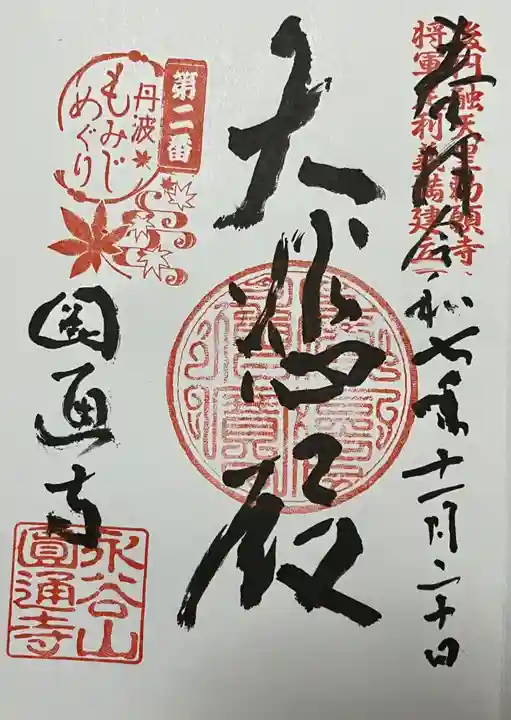 後円融天皇勅願寺
将軍足利義満建立
奉拝 令和七年十一月二十日
大悲殿
第二番
丹波
もみじ
めぐり
圓通寺
永谷山
圓通寺